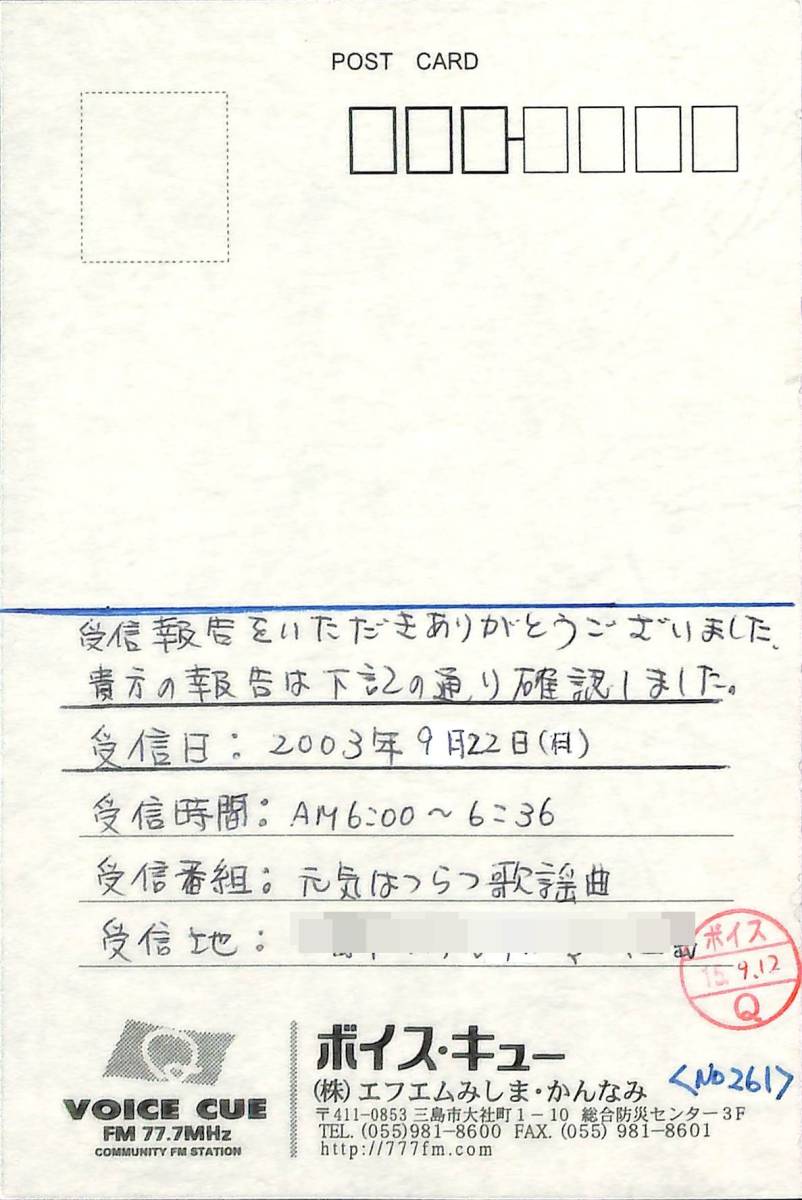 POST CARD
受信報告をいただきありがとうございました、
貴方の報告は下記の通り確認しました。
受信日：2003年9月22日(日)
受信時間：AM6:00～6:36
受信番組：元気はつらつ歌謡曲
受信地：
ボイス
15.9.12
Q
ボイス・キュー
(株)エフエムみしま・かんなみ
<No261>
〒411-0853 三島市大社町1-10 総合防災センター3F
TEL. (055)981-8600 FAX. (055) 981-8601
http://777fm.com
VOICE CUE
FM 77.7MHz
COMMUNITY FM STATION